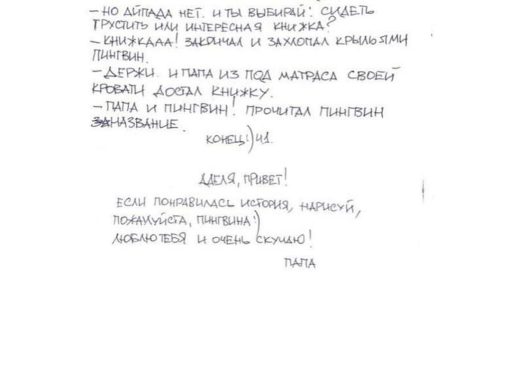 - НО АЙПАДА НЕТ. И ТЫ ВЫБИРАЙ: СИДЕТЬ
ГРУСТИТЬ ИЛИ ИНТЕРЕСНАЯ КНИЖКА?
- КНИЖКААА! ЗАКРИЧАЛ И ЗАХЛОПАЛ КРЫЛЬЯМИ
ПИНГВИН.
- ДЕРЖИ. И ПАПА ИЗ ПОД МАТРАСА СВОЕЙ
КРОВАТИ ДОСТАЛ КНИЖКУ.
- ПАПА И ПИНГВИН! ПРОЧИТАЛ ПИНГВИН
НАЗВАНИЕ.
КОНЕЦ:) Ч1.
АДЕЛЯ, ПРИВЕТ!
ЕСЛИ ПОНРАВИЛАСЬ ИСТОРИЯ, НАРИСУЙ,
ПОЖАЛУЙСТА, ПИНГВИНА:)
ЛЮБЛЮ ТЕБЯ И ОЧЕНЬ СКУЧАЮ!
ПАПА